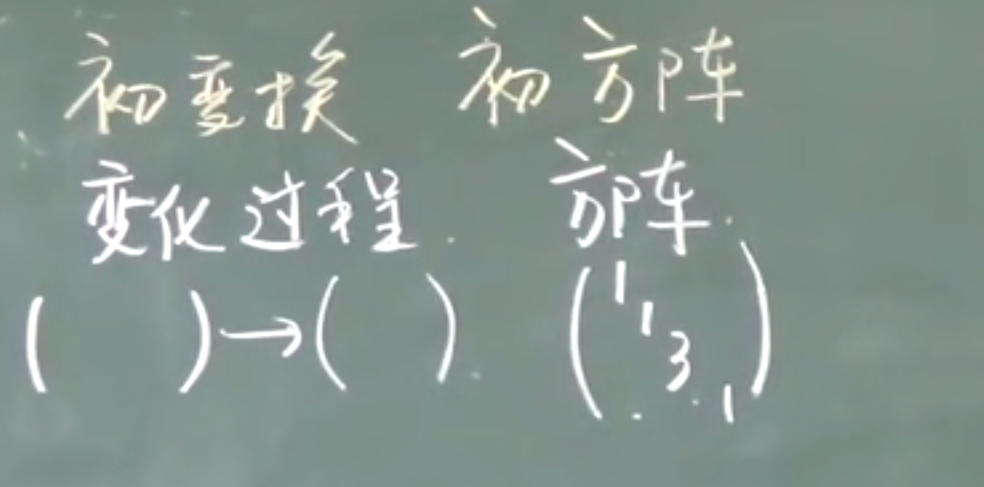 初变换 初方阵
变化过程. 方阵.
( )→( ). ( 1 1 3 . . 1 )